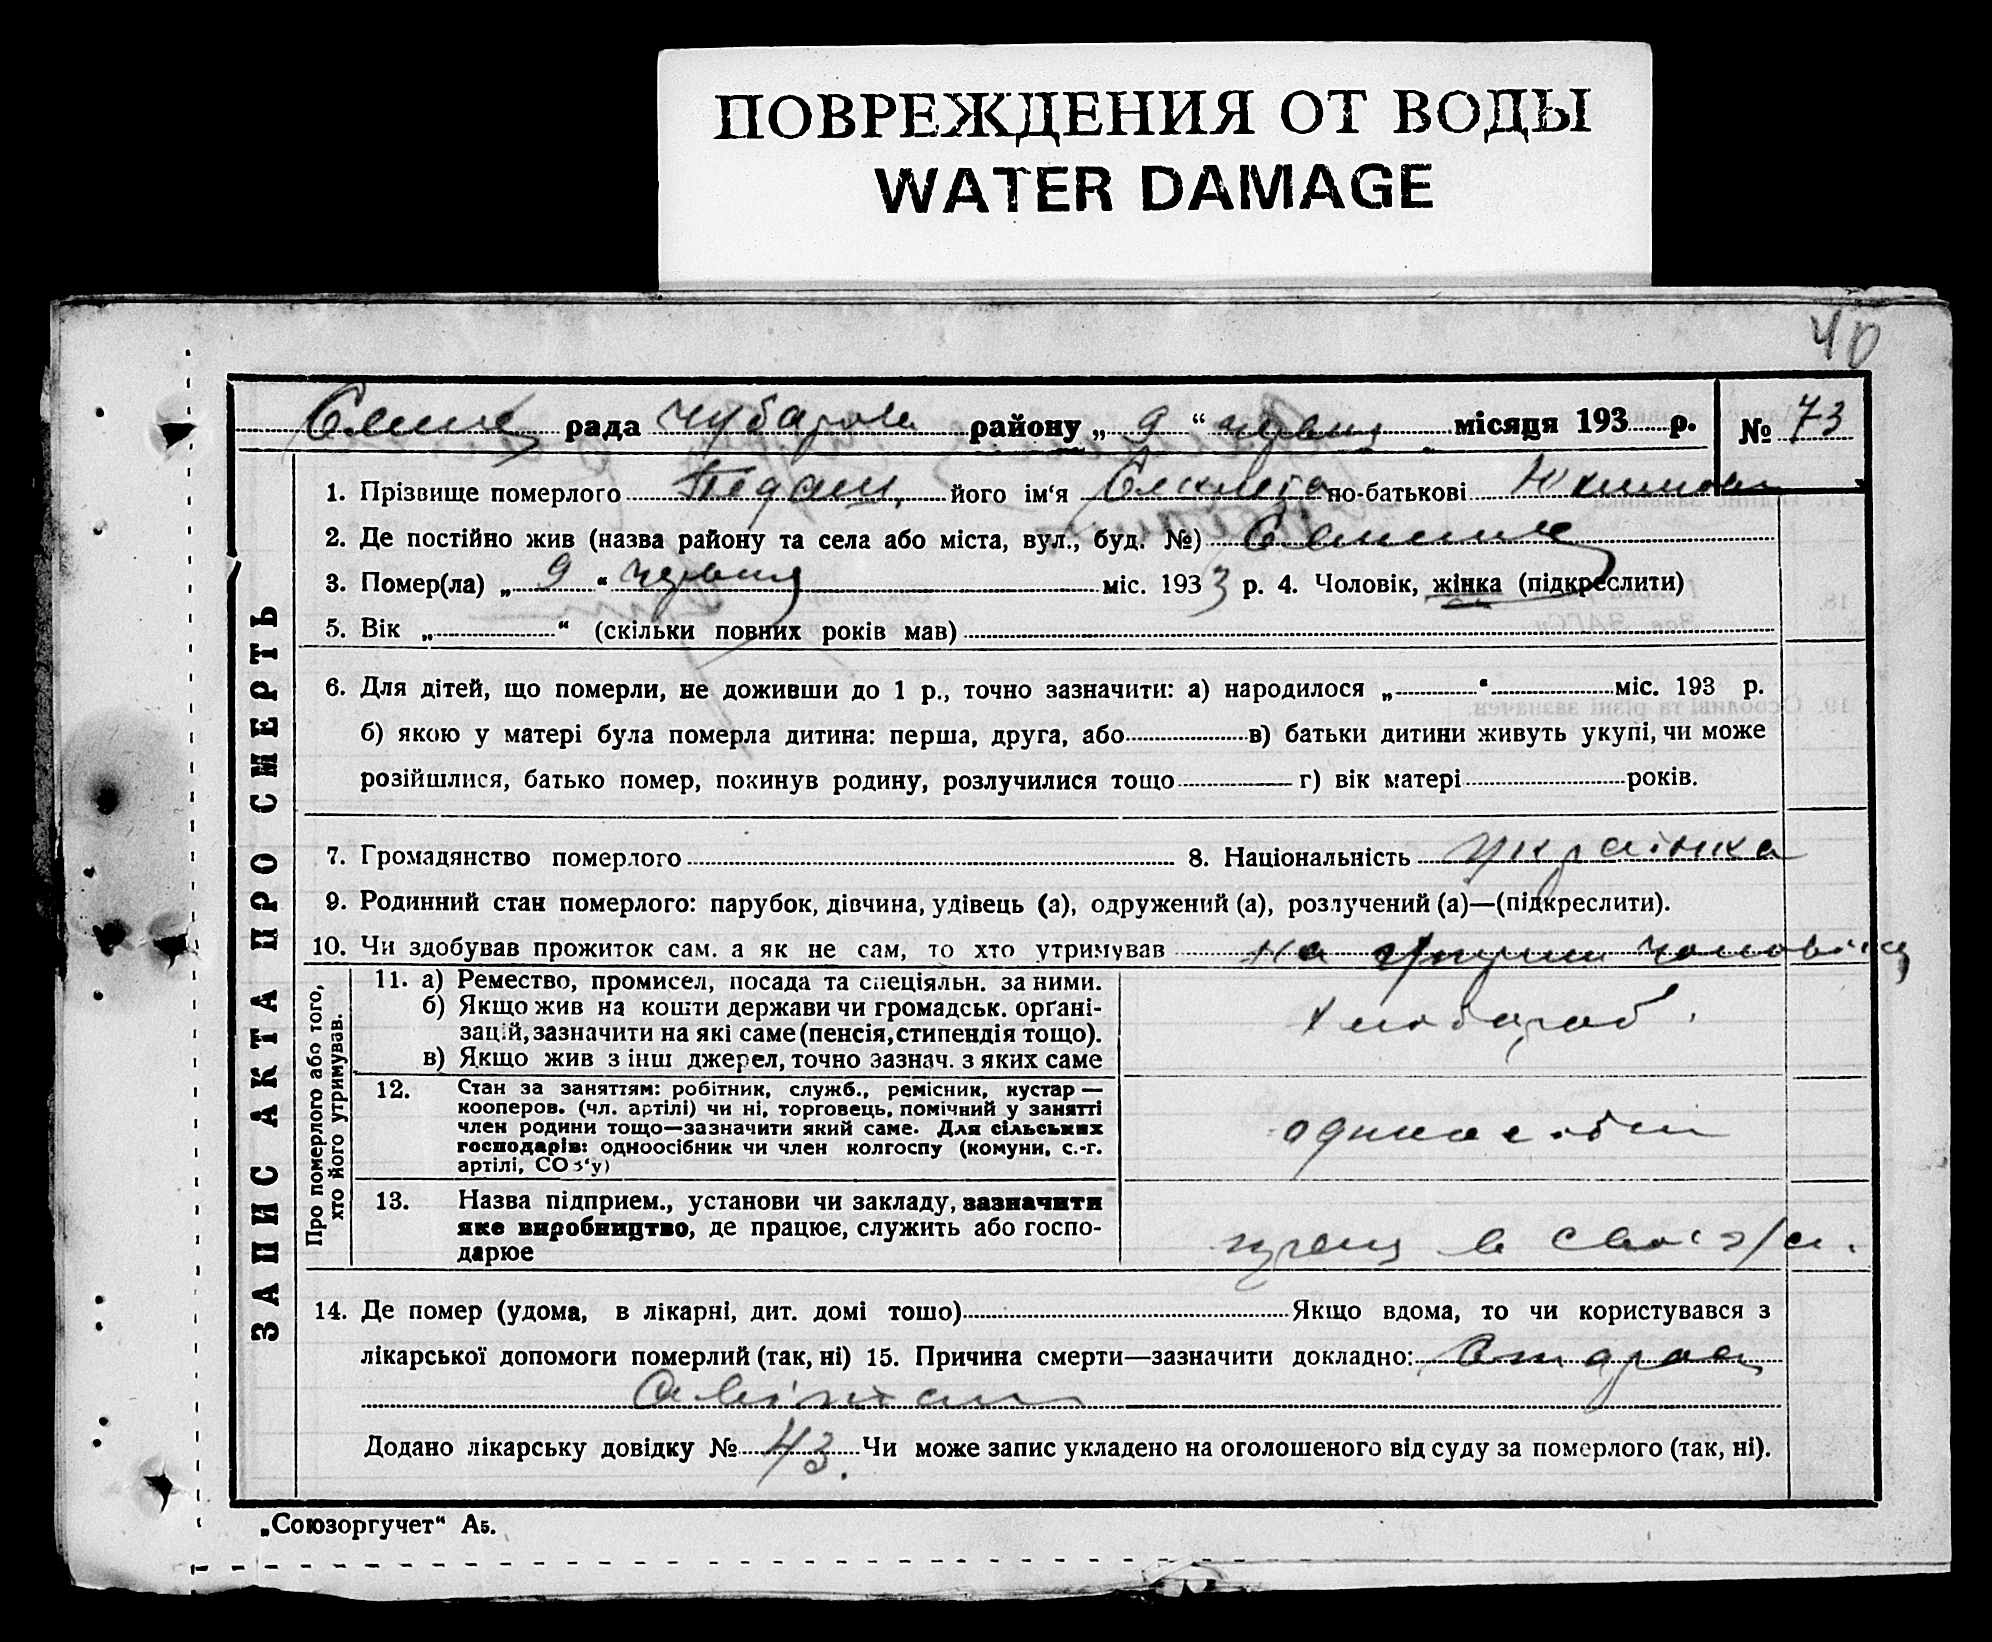 ПОВРЕЖДЕНИЯ ОТ ВОДЫ
WATER DAMAGE
40
рада район​у „ 9 “ червня місяця 193 р. № 73
1. Прізвище померлого його ім'я по-батькові
2. Де постійно жив (назва району та села або міста, вул., буд. №)
3. Помер(ла) „ 9 “ червня міс. 1933 р. 4. Чоловік, жінка (підкреслити)
5. Вік „ “ (скільки повних років мав)
6. Для дітей, що померли, не доживши до 1 р., точно зазначити: а) народилося „ “ міс. 193 р.
б) якою у матері була померла дитина: перша, друга, або в) батьки дитини живуть укупі, чи може
розійшлися, батько помер, покинув родину, розлучилися тощо г) вік матері років.
7. Громадянство померлого 8. Національність українка
9. Родинний стан померлого: парубок, дівчина, удівець (а), одружений (а), розлучений (а)—(підкреслити).
10. Чи здобував прожиток сам. а як не сам, то хто утримував на
ЗАПИС АКТА ПРО СМЕРТЬ
Про померлого або того,
хто його утримував.
11. а) Ремество, промисел, посада та спеціяльн. за ними.
б) Якщо жив на кошти держави чи громадськ. орґані-
зацій, зазначити на які саме (пенсія, стипендія тощо).
в) Якщо жив з інш джерел, точно зазнач. з яких саме
хлібороб
12. Стан за заняттям: робітник, служб., ремісник, кустар —
кооперов. (чл. артілі) чи ні, торговець, помічний у занятті
член родини тощо—зазначити який саме. Для сільських
господарів: одноосібник чи член колгоспу (комуни, с.-г.
артілі, СОЗ'у)
13. Назва підприєм., установи чи закладу, зазначити
яке виробництво, де працює, служить або госпо-
дарює
14. Де помер (удома, в лікарні, дит. домі тошо) Якщо вдома, то чи користувався з
лікарської допомоги померлий (так, ні) 15. Причина смерти—зазначити докладно:
Додано лікарську довідку № 43. Чи може запис укладено на оголошеного від суду за померлого (так, ні).
„Союзоргучет“ А5.